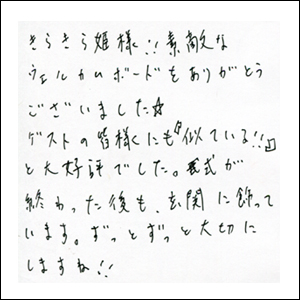 きらきら姫様!!素敵な
ウェルカムボードをありがとう
ございました☆
ゲストの皆様にも「似ている!!」
と大好評でした。式が
終わった後も、玄関に飾って
います。ずっとずっと大切に
しますね!!